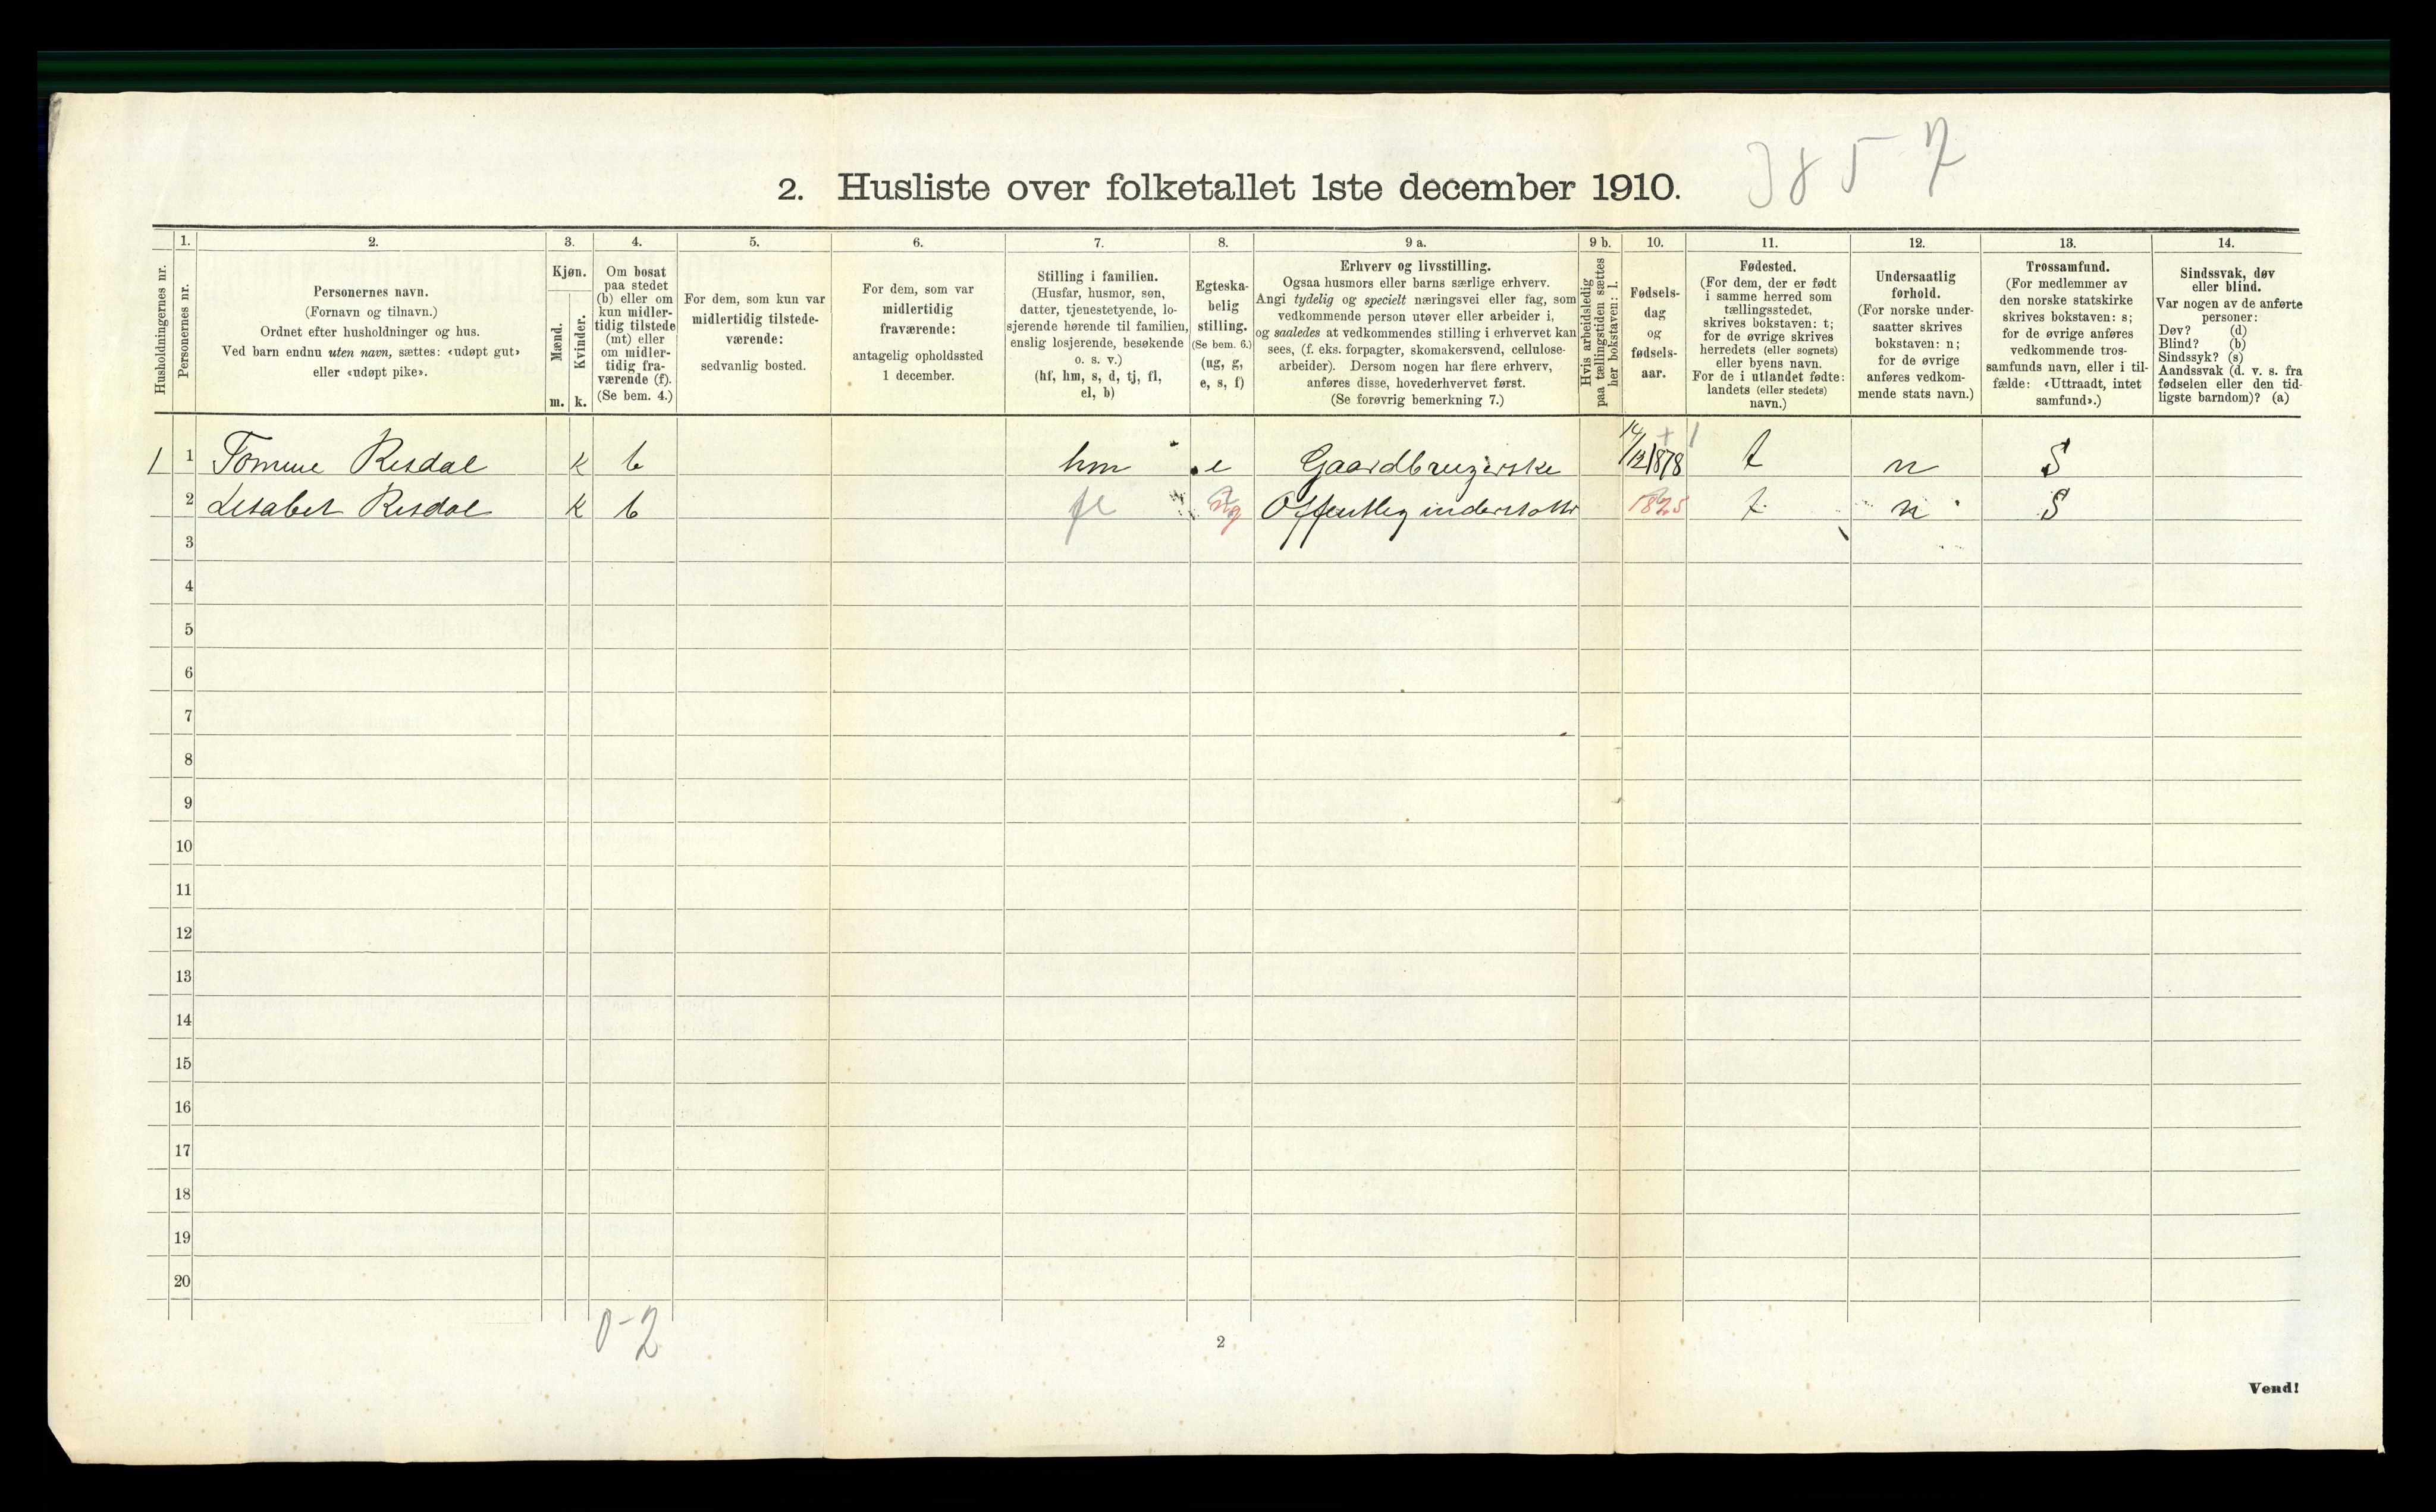 3857
2. Husliste over folketallet 1ste december 1910.
Husholdningernes nr.
1.
Personernes nr.
2.
Personernes navn.
(Fornavn og tilnavn.)
Ordnet efter husholdninger og hus.
Ved barn endnu uten navn, sættes: «udøpt gut»
eller «udøpt pike».
3.
Kjøn.
Mænd.
Kvinder.
m. k.
4.
Om bosat
paa stedet
(b) eller om
kun midler-
tidig tilstede
(mt) eller
om midler-
tidig fra-
værende (f).
(Se bem. 4.)
5.
For dem, som kun var
midlertidig tilstede-
værende:
sedvanlig bosted.
6.
For dem, som var
midlertidig
fraværende:
antagelig opholdssted
1 december.
7.
Stilling i familien.
(Husfar, husmor, søn,
datter, tjenestetyende, lo-
sjerende hørende til familien,
enslig losjerende, besøkende
o. s. v.)
(hf, hm, s, d, tj, fl,
el, b)
8.
Egteska-
belig
stilling.
(Se bem. 6.)
(ng, g,
e, s, f)
9 a.
Erhverv og livsstilling.
Ogsaa husmors eller barns særlige erhverv.
Angi tydelig og specielt næringsvei eller fag, som
vedkommende person utøver eller arbeider i,
og saaledes at vedkommendes stilling i erhvervet kan
sees, (f. eks. forpagter, skomakersvend, cellulose-
arbeider). Dersom nogen har flere erhverv,
anføres disse, hovederhvervet først.
(Se forøvrig bemerkning 7.)
9 b.
Hvis arbeidsledig
paa tællingstiden sættes
her bokstaven: l.
10.
Fødsels-
dag
og
fødsels-
aar.
11.
Fødested.
(For dem, der er født
i samme herred som
tællingsstedet,
skrives bokstaven: t;
for de øvrige skrives
herredets (eller sognets)
eller byens navn.
For de i utlandet fødte:
landets (eller stedets)
navn.)
12.
Undersaatlig
forhold.
(For norske under-
saatter skrives
bokstaven: n;
for de øvrige
anføres vedkom-
mende stats navn.)
13.
Trossamfund.
(For medlemmer av
den norske statskirke
skrives bokstaven: s;
for de øvrige anføres
vedkommende tros-
samfunds navn, eller i til-
fælde: «Uttraadt, intet
samfund».)
14.
Sindssvak, døv
eller blind.
Var nogen av de anførte
personer:
Døv? (d)
Blind? (b)
Sindssyk? (s)
Aandssvak (d. v. s. fra
fødselen eller den tid-
ligste barndom)? (a)
1 1 Tomine Risdal k b hm e Gaardbrugerske 14/12 1878 t n S
2 Lisabet Risdal k b fl ng Offentlig 1825 t n S
3
4
5
6
7
8
9
10
11
12
13
14
15
16
17
18
19
20
0-2
2
Vend!